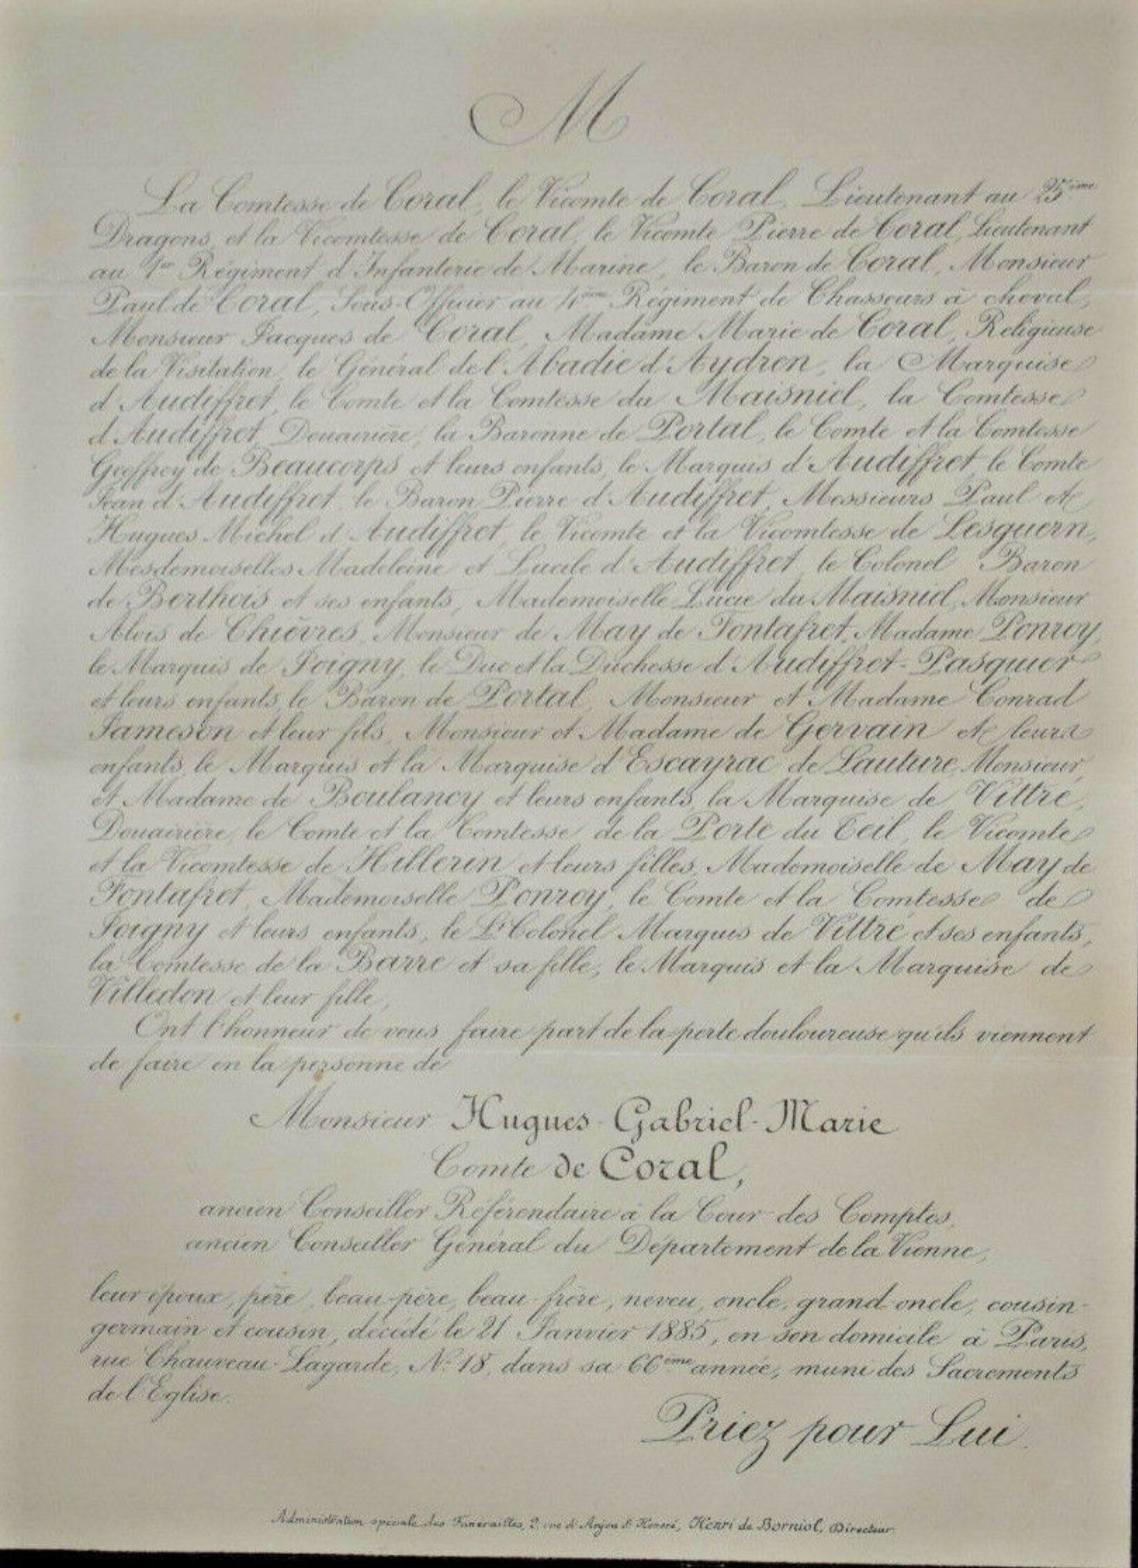 M
La Comtesse de Coral, le Vicomte de Coral, Lieutenant au 25ème
Dragons, et la Vicomtesse de Coral, le Vicomte Pierre de Coral, Lieutenant
au 1er Régiment d'Infanterie de Marine, le Baron de Coral, Monsieur
Paul de Coral, Sous-Officier au 4ème Régiment de Chasseurs à cheval,
Monsieur Jacques de Coral, Madame Marie de Coral, Religieuse
de la Visitation, le Général de l'Abadie d'Aydren, la Marquise
d'Audiffret, le Comte et la Comtesse du Maisniel, la Comtesse
d'Audiffret, Douairière, la Baronne de Portal, le Comte et la Comtesse
Geoffroy de Beaucorps et leurs enfants, le Marquis d'Audiffret, le Comte
Jean d'Audiffret, le Baron Pierre d'Audiffret, Messieurs Paul et
Hugues Michel d'Audiffret, le Vicomte et la Vicomtesse de Lesguern,
Mesdemoiselles Madeleine et Lucile d'Audiffret, le Colonel Baron
de Berthois et ses enfants, Mademoiselle Lucie du Maisniel, Monsieur
Alois de Chièvres, Monsieur de May de Fontafret, Madame Ponroy,
le Marquis de Joigny, le Duc et la Duchesse d'Audiffret-Pasquier
et leurs enfants, le Baron de Portal, Monsieur et Madame Conrad
Jameson et leur fils, Monsieur et Madame de Gervain et leurs
enfants, le Marquis et la Marquise d'Escayrac de Lauture, Monsieur
et Madame de Boulancy et leurs enfants, la Marquise de Vittré,
Douairière, le Comte et la Comtesse de la Porte du Teil, le Vicomte
et la Vicomtesse de Hillerin et leurs filles, Mademoiselle de May de
Fontafret, Mademoiselle Ponroy, le Comte et la Comtesse de
Joigny et leurs enfants, le Lt Colonel Marquis de Vittré et ses enfants,
la Comtesse de la Barre et sa fille, le Marquis et la Marquise de
Villedon et leur fille,
Ont l'honneur de vous faire part de la perte douloureuse qu'ils viennent
de faire en la personne de
Monsieur Hugues-Gabriel-Marie
Comte de Coral,
ancien Conseiller Référendaire à la Cour des Comptes,
ancien Conseiller Général du Département de la Vienne,
leur époux, père, beau-père, beau-frère, neveu, oncle, grand-oncle, cousin-
germain et cousin, décédé le 21 Janvier 1885, en son domicile à Paris,
rue Chauveau-Lagarde, No 18, dans sa 66ème année, muni des Sacrements
de l'Eglise.
Priez pour Lui.
Administration spéciale des Funérailles, 2, rue d'Anjou St Honoré, Henri de Borniol, Directeur.